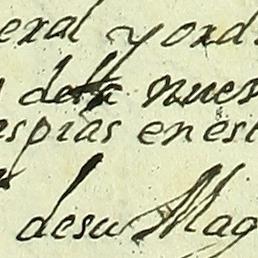 eral y ord
nues
espias en est
de su Mag